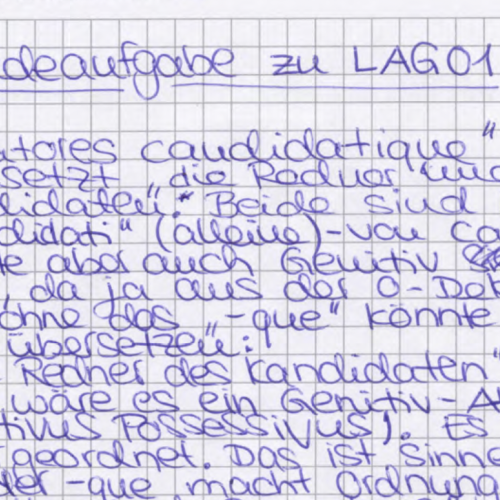 deaufgabe zu LAG01
atores candidatique"
setzt "die Redner und
didaten".* Beide sind
didati" (alleine)-von Ca
te aber auch Genitiv
, da ja aus der O-Dek
ohne das "-que" könnte
übersetzen:
Redner des Kandidaten"
wäre es ein Genitiv-A
tivus Possessivus). Es
geordnet. Das ist Sinne
der -que macht Ordnung